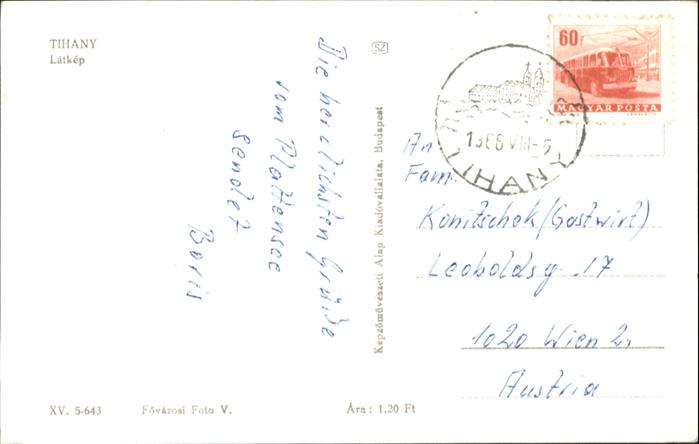 TIHANY
Látkép
Die herzlichsten Grüße
vom Plattensee
sendet
Boris
SZ
Képzőművészeti Alap Kiadóvállalata, Budapest
60 f
MAGYAR POSTA
1966 VIII-5
TIHANY
An
Fam.
Konitschek (Gastwirt)
Leopoldsg. 17
1020 Wien 2.
Austria
XV. 5-643
Fővárosi Foto V.
Ára: 1,20 Ft